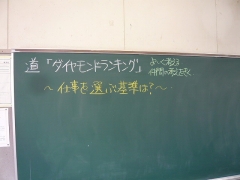 道『ダイヤモンドランキング』
よく考える
仲間の考えをきく
～仕事を選ぶ基準は？～